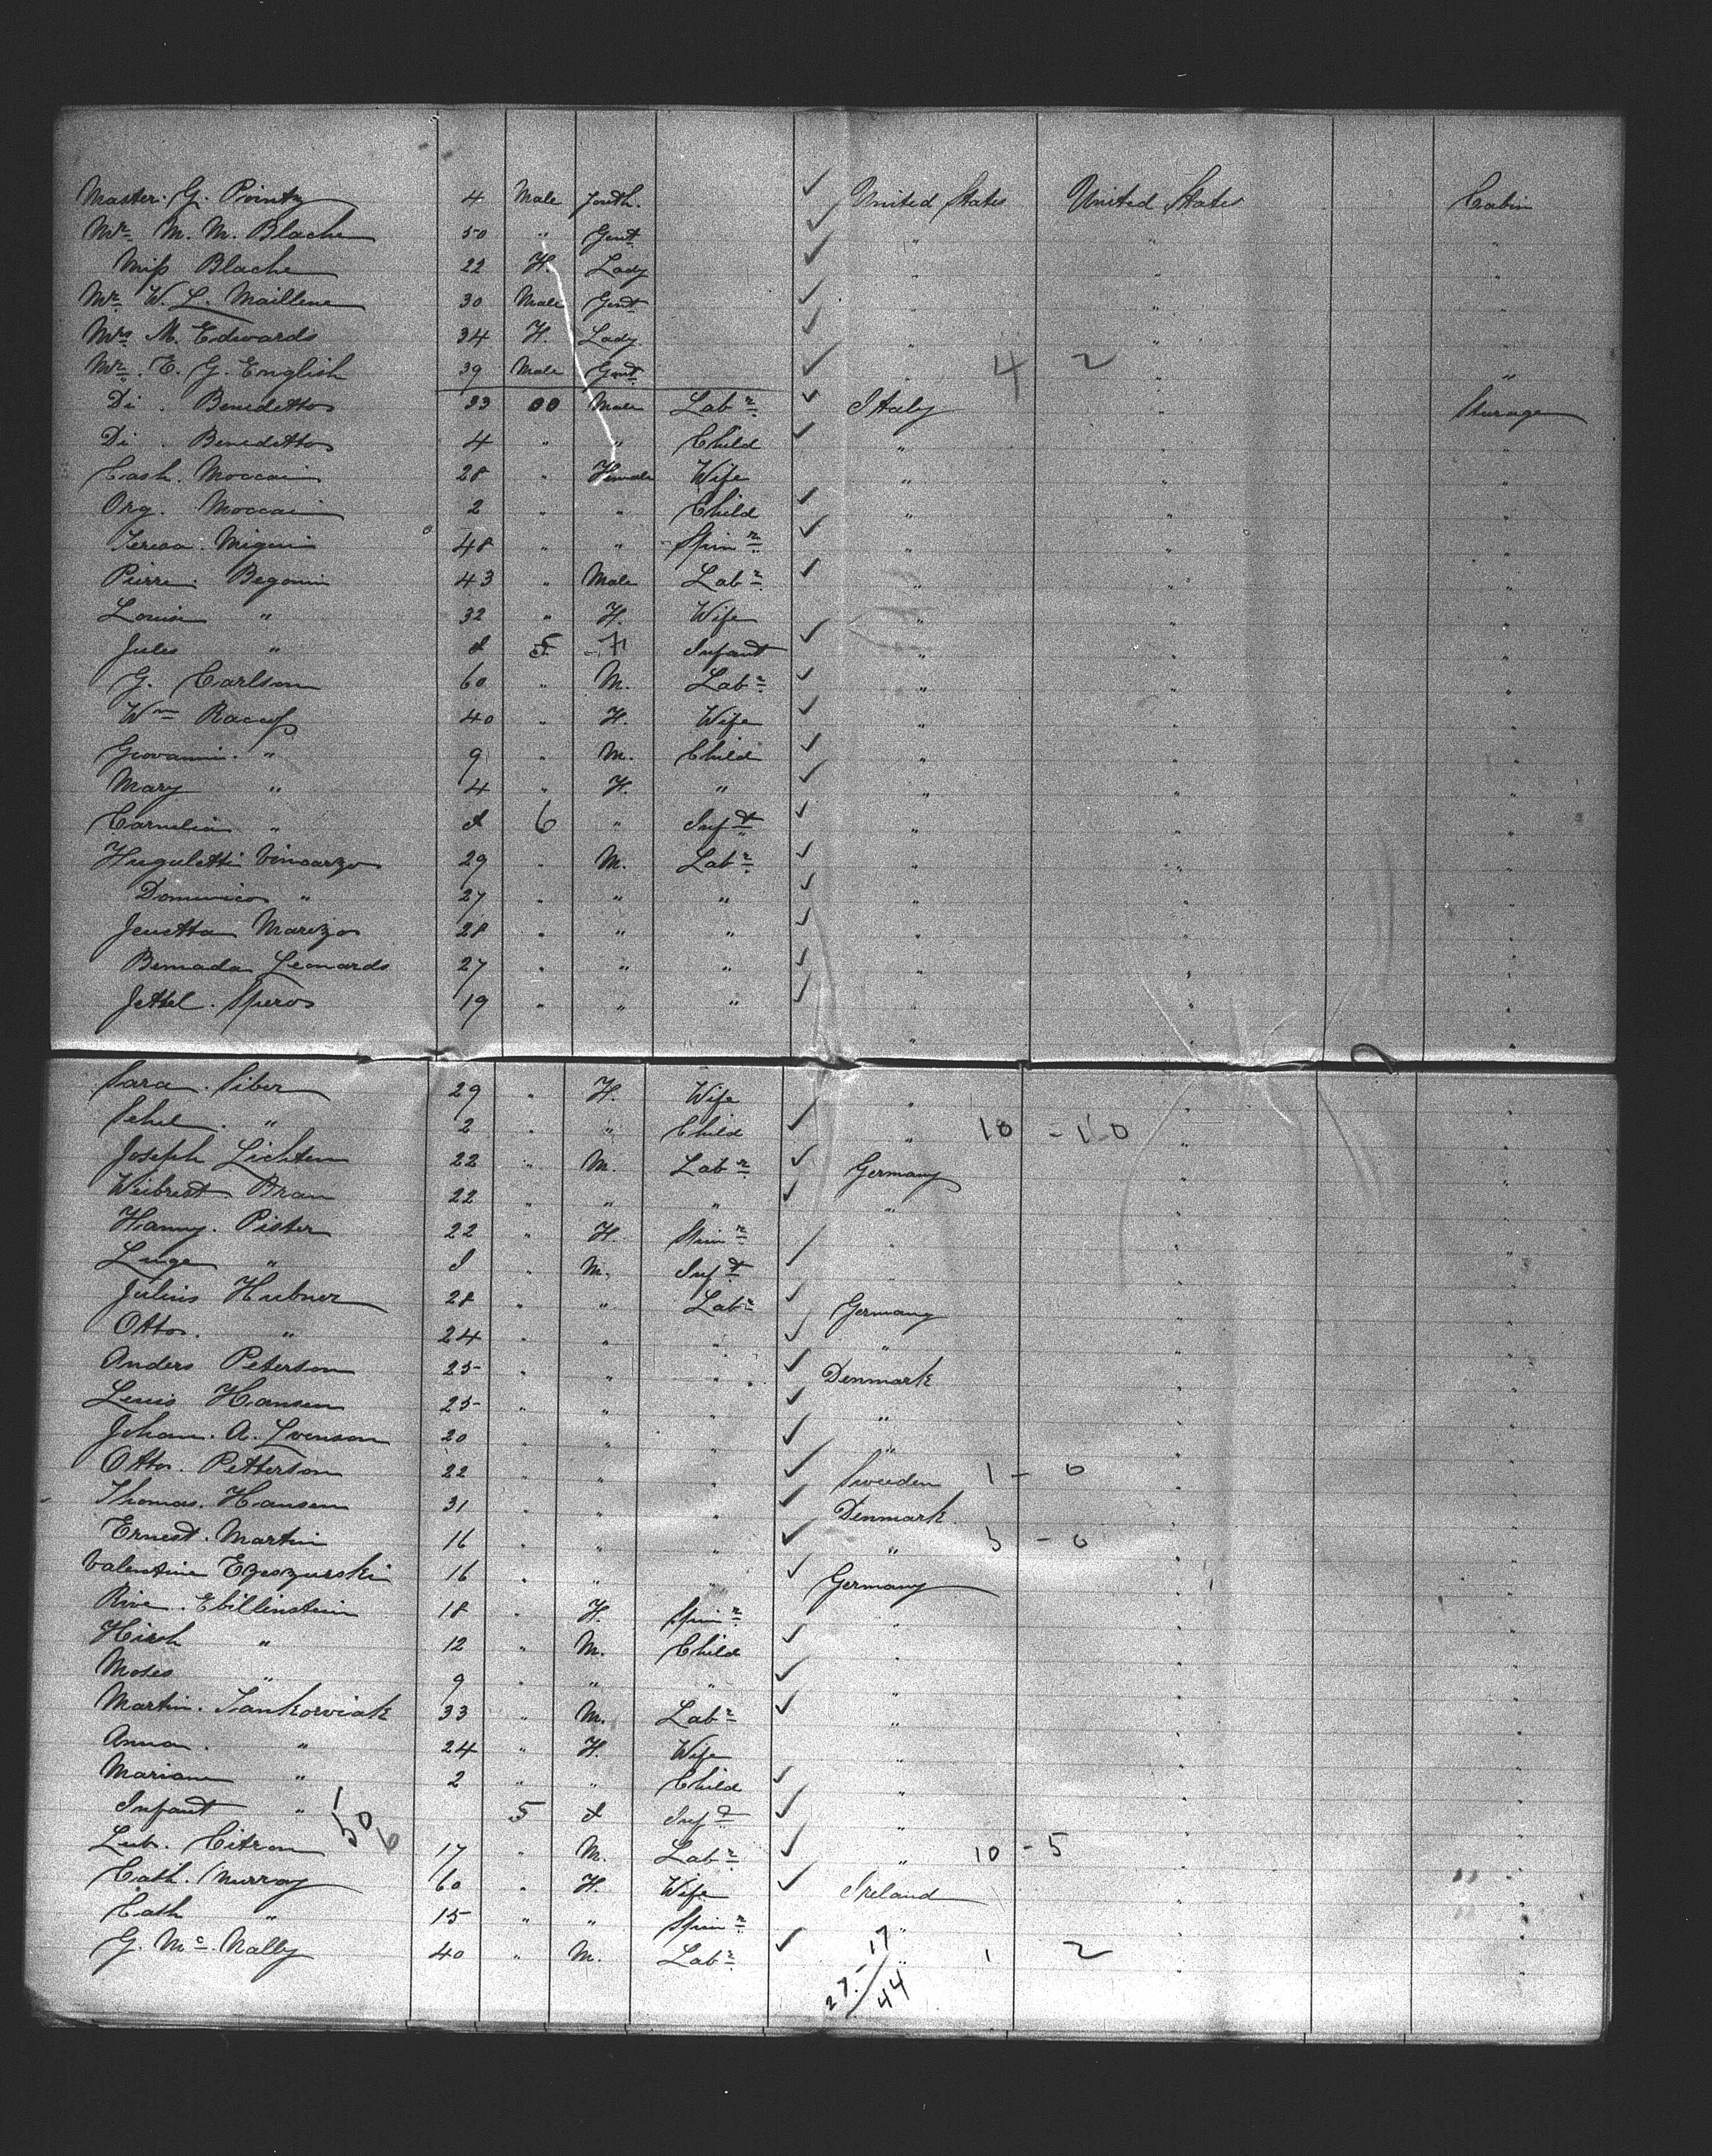 Master. G. Pointz 4 Male Youth. ✓ United States United States Cabin
Mr. M. M. Blache 50 " Gent. ✓ " " "
Miss Blache 22 F. Lady ✓ " " "
Mr. W. L. Maillene 30 Male Gent. ✓ " " "
Mrs. M. Edwards 34 F. Lady. ✓ " " "
Mr. E. G. English 39 Male Gent. ✓ " 4 2 " "
Di . Benedetto 33 00 Male Labr. ✓ Italy " Steerage
Di . Benedetto 4 " " Child ✓ " " "
Cash. Moccai 28 " Female Wife " " "
Org. Moccai 2 " " Child ✓ " " "
Teresa. Migui 48 " " Spinr. ✓ " " "
Pierre. Begouin 43 " Male Labr. ✓ " " "
Louise " 32 " F. Wife " " "
Jules " I 5 F Infant ✓ " " "
G. Carlson 60 " M. Labr. ✓ " " "
Wm 40 " F. Wife ✓ " " "
Giovanni. " 9 " M. Child ✓ " " "
Mary " 4 " F. " ✓ " " "
Cornelia " I 6 " Inft. ✓ " " "
Huguletti Vincarzo 29 " M. Labr. ✓ " " "
Domenico " 27 " " " ✓ " " "
Jenetta Marizo 28 " " " ✓ " " "
Bernada Leonardo 27 " " " ✓ " " "
Jettel. Speros 19 " " " ✓ " " "
Sara. Siber 29 " F. Wife " " "
" 2 " " Child ✓ " 10 - 10 " "
Joseph Lichten 22 " M. Labr. ✓ Germany " "
Weibrest Bran 22 " " " ✓ " " "
Hanny. Pister 22 " F. Spinr. ✓ " " "
Luge " I " M. Inft. ✓ " "
Julius Hubner 28 " " Labr. ✓ Germany " "
Otto. " 24 " " " ✓ " " "
Anders Peterson 25 " " " ✓ Denmark " "
Lewis Hansen 25 " " " ✓ " " "
Johan. A. Svenson 20 " " " ✓ " " "
Otto. Petterson 22 " " " ✓ Sweden 1 - 0 " "
Thomas. Hansen 31 " " " ✓ Denmark. " "
Ernest. Martin 16 " " " ✓ " 5 - 0 " "
Valentine Ezeszurski 16 " " " ✓ Germany " "
Rive. Ebillinstein 18 " F. Spinr. " " "
Hirsh " 12 " M. Child ✓ " " "
Moses " 9 " " " ✓ " " "
Martin. Jankorviak 33 " M. Labr. ✓ " " "
Anna. " 24 " F. Wife " " "
Mariane " 2 " " Child ✓ " " "
Infant " 5 I Inft. ✓ " " "
Lub. Citron 17 " M. Labr. ✓ " 10 - 5 " "
Cath. Murray 60 " F. Wife ✓ Ireland " "
Cath " 15 " " Spinr. " " "
G. Mc. Nally 40 " M. Labr. ✓ " 1 2 " "
27. / 17
44